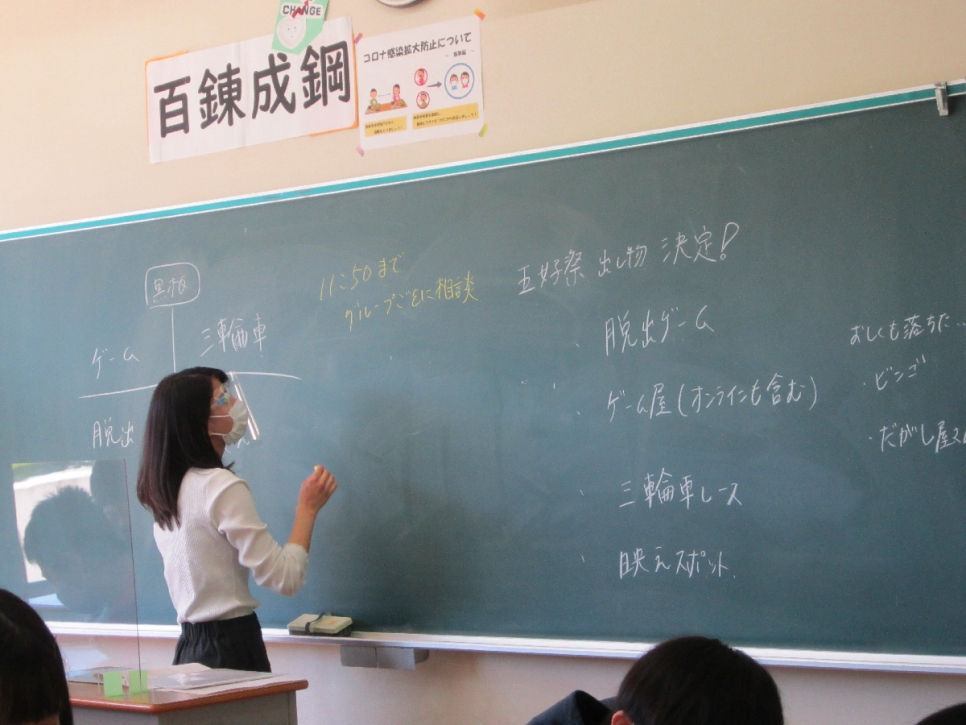 CHANGE
百錬成鋼
コロナ感染拡大防止について
黒板
ゲーム
三輪車
脱出
11:50まで
グループごとに相談
五好祭 出し物 決定!
・脱出ゲーム
・ゲーム屋(オンラインも含む)
・三輪車レース
・映えスポット
おしくも落ちた…
・ビンゴ
・だがし屋さん